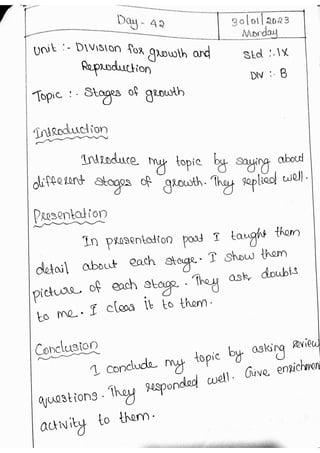 Day - 42
30/01/2023
Monday
Unit :- Division for growth and
Reproduction
Std :- IX
Div :- B
Topic :- Stages of growth
Introduction
Introduce my topic by saying about
different stages of growth. They replied well.
Presentation
In presentation part I taught them
detail about each stage. I show them
picture of each stage. They ask doubts
to me. I clear it to them.
Conclusion
I conclude my topic by asking review
questions. They responded well. Give enrichment
activity to them.